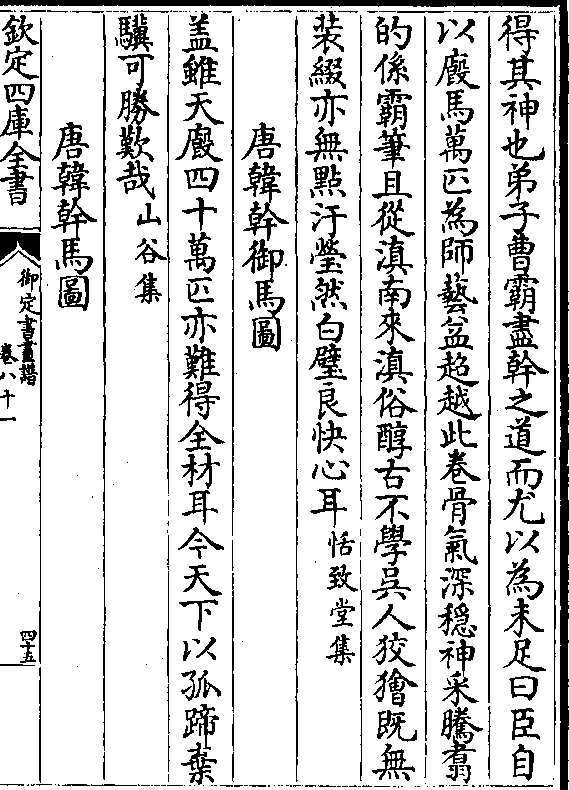 得其神也弟子曹霸盡幹之道而尤以為未足曰臣自
以廐馬萬匹為師藝益超越此卷骨氣深穩神采騰翥
的係霸筆且從滇南來滇俗醇古不學吳人狡獪既無
装綴亦無點汙瑩然白璧良快心耳恬致堂集
唐韓幹御馬圖
盖雖天廐四十萬匹亦難得全材耳今天下以孤蹄棄
驥可勝歎哉山谷集
唐韓幹馬圖
欽定四庫全書
御定書畫譜
卷八十一
四十五